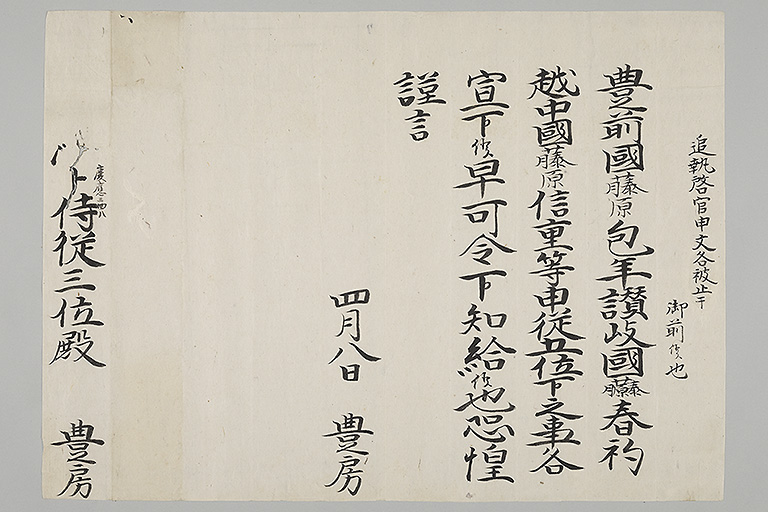 追執啓官申文各被止了
御前候也
豊前國藤原包年讃岐國藤原春礿
越中國藤原信重等申従五位下之事各
宣下候早可令下知給候也恐惶
謹言
四月八日 豊房
慶應三四八
侍従三位殿 豊房